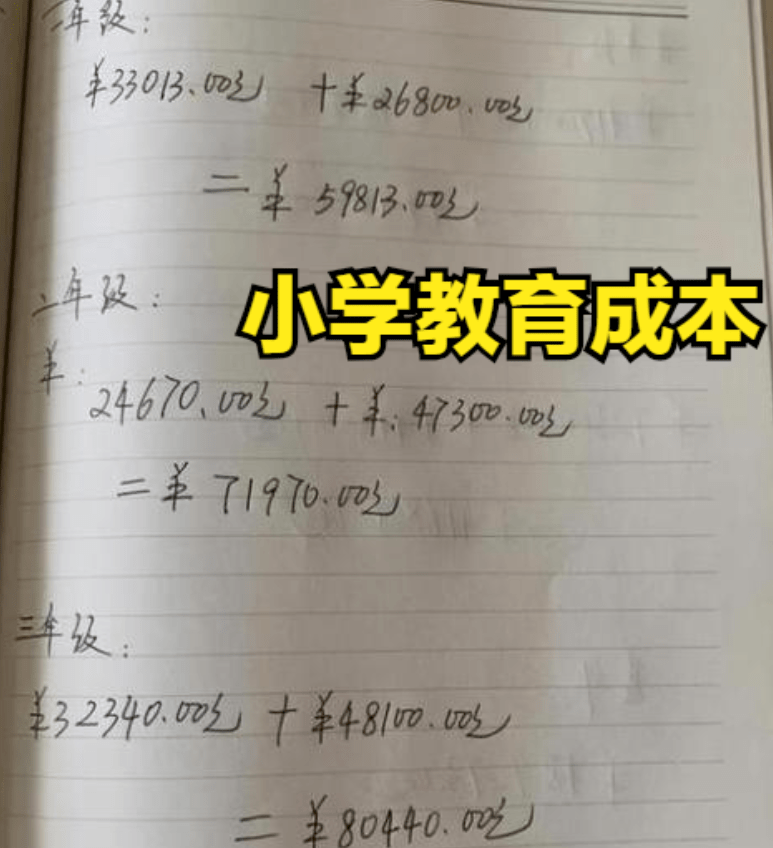 一年级:
¥33013.00元 +¥26800.00元
=¥ 59813.00元
二年级:
小学教育成本
¥:
24670.00元 +¥:47300.00元
=¥ 71970.00元
三年级:
¥32340.00元 +¥48100.00元
=¥80440.00元